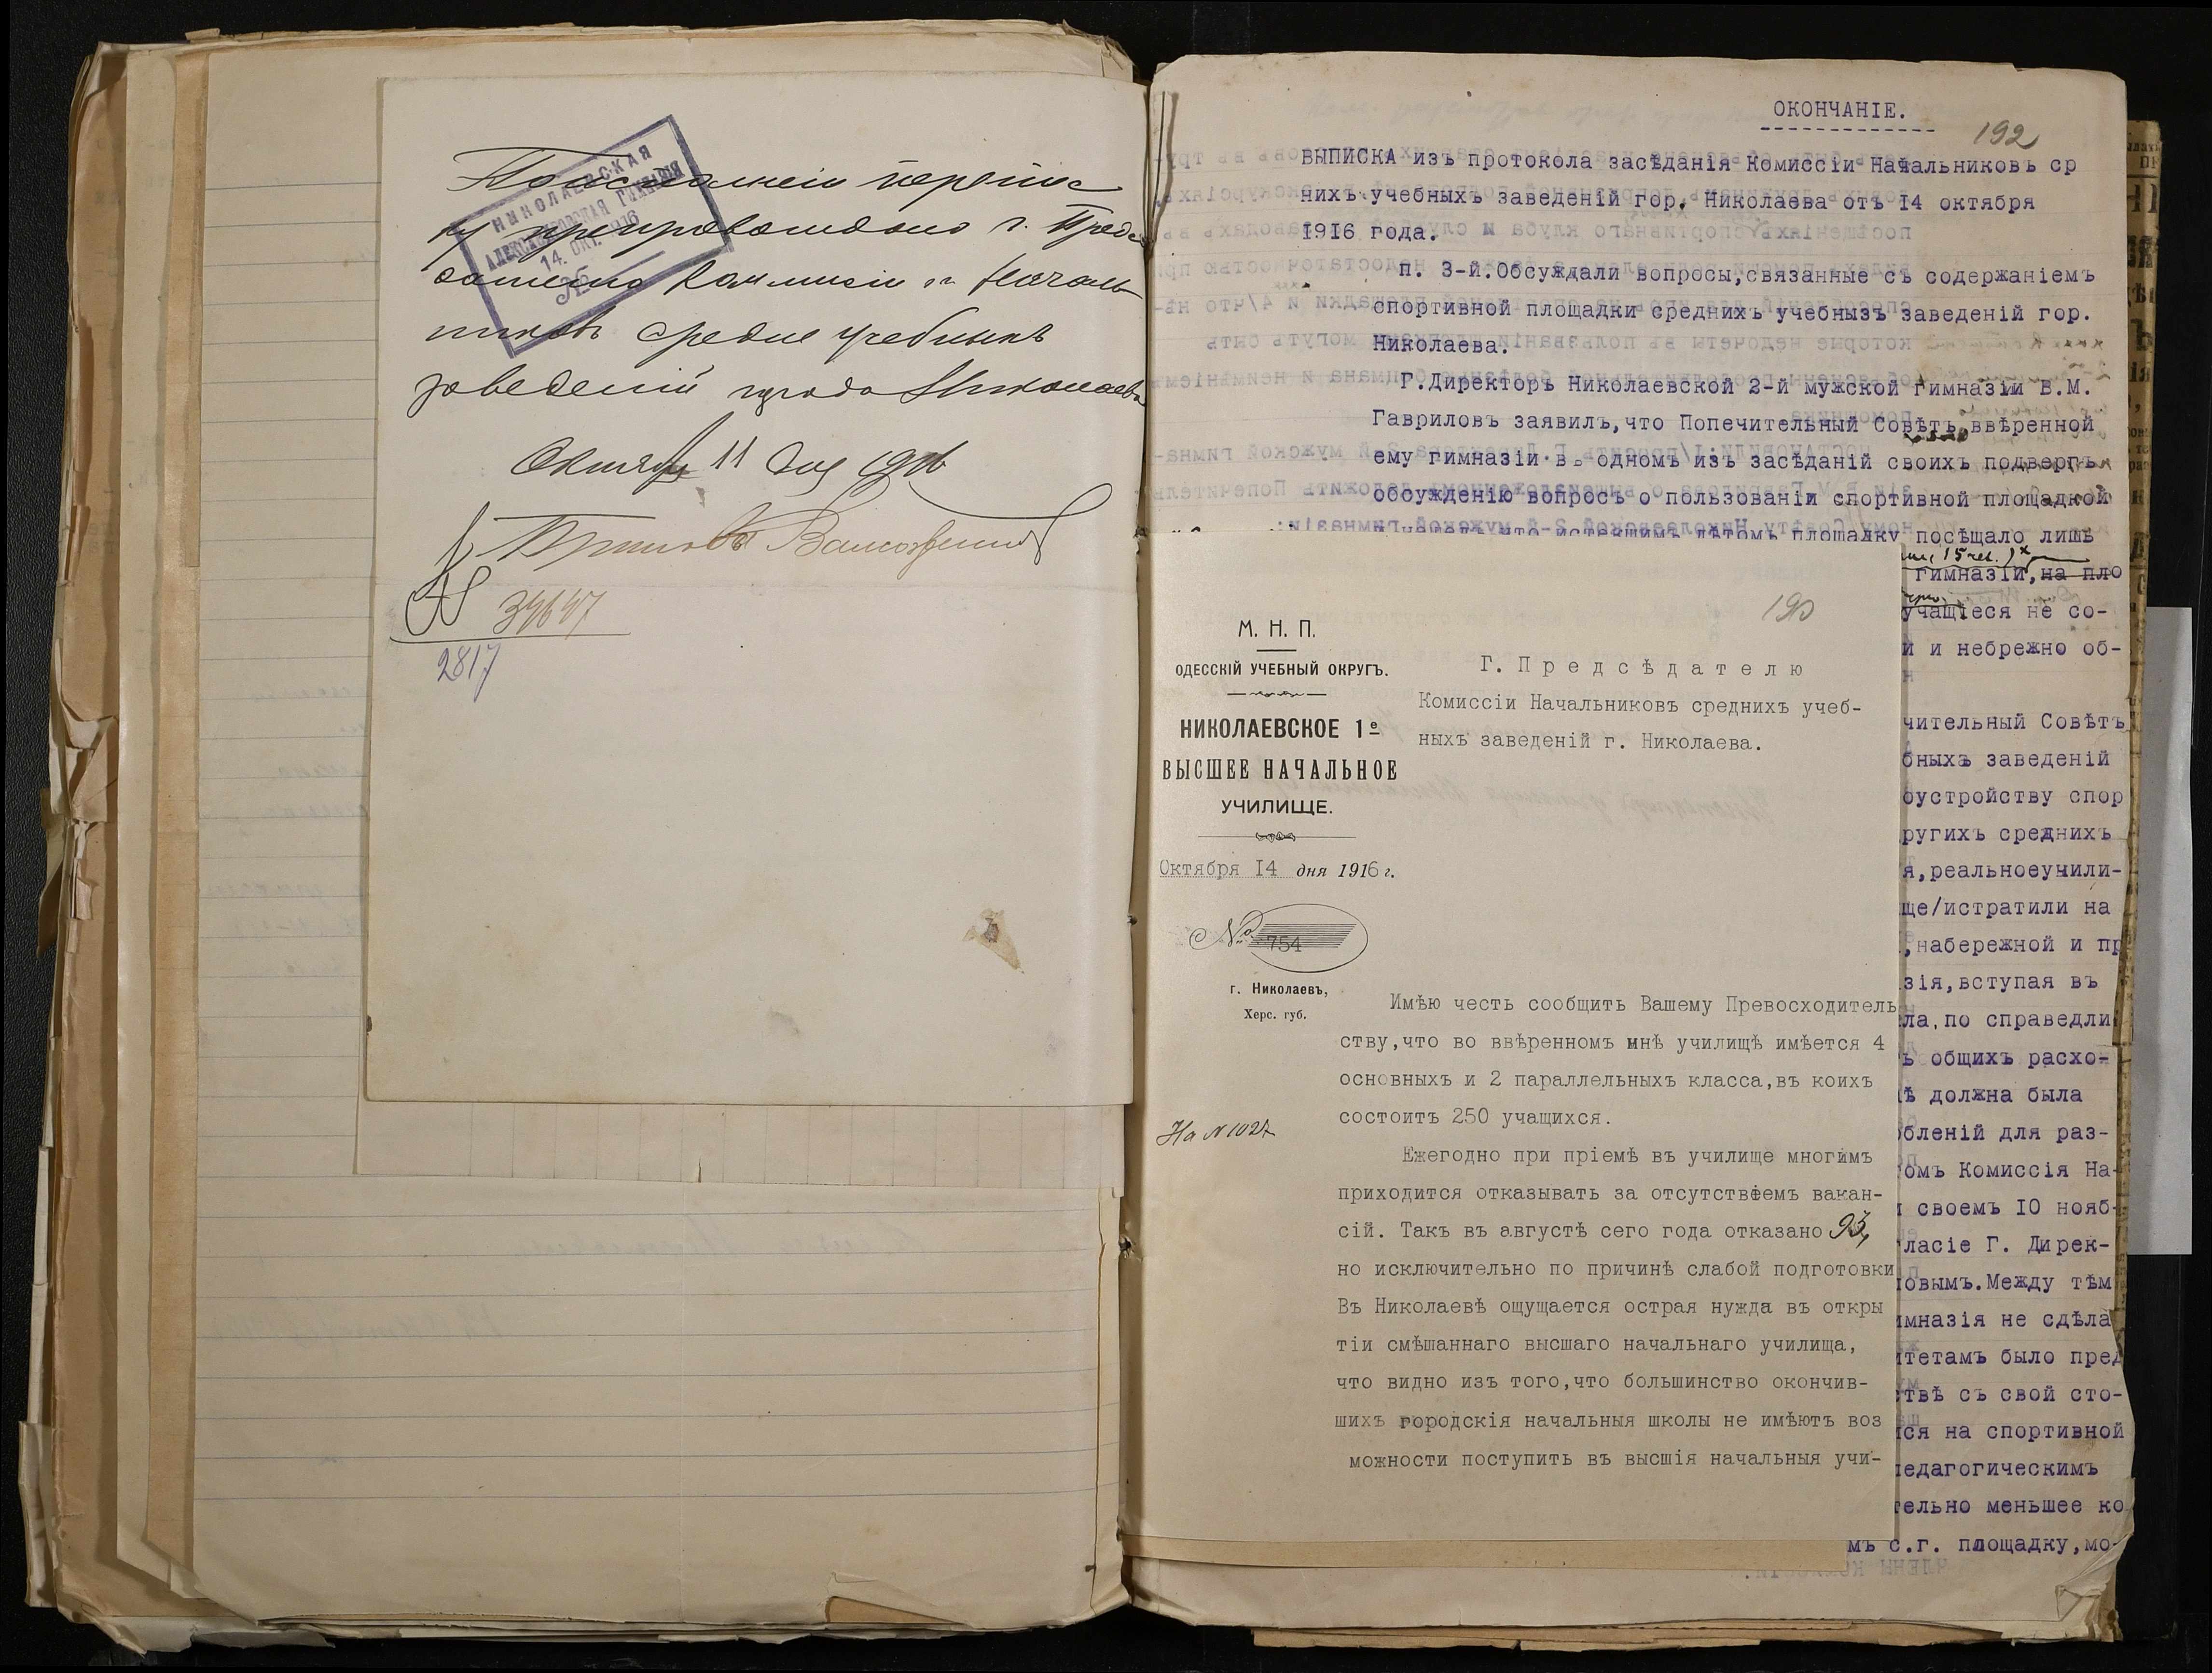 НИКОЛАЕВСКАЯ
АЛЕКСАНДРОВСКАЯ ГИМНАЗІЯ
14. ОКТ. 1916
№
г. Предсѣ
Коммисіи
средне учебныхъ
заведеній города Николаева
Октября 11 дня 1916
№ 34647
2817
ОКОНЧАНІЕ.
192
ВЫПИСКА изъ протокола засѣданія Комиссіи Начальниковъ ср
нихъ учебныхъ заведеній гор. Николаева отъ I4 октября
1916 года.
п. 3-й.Обсуждали вопросы,связанные съ содержаніемъ
спортивной площадки среднихъ учебнызъ заведеній гор.
Николаева.
Г.Директоръ Николаевской 2-й мужской гимназіи В.М.
Гавриловъ заявилъ,что Попечительный Совѣтъ ввѣренной
ему гимназіи въ одномъ изъ засѣданій своихъ подвергъ
обсужденію вопросъ о пользованіи спортивной площадкой
что истекшимъ лѣтомъ площадку посѣщало лишь
15 чел.
гимназіи, на пло
учащіеся не со-
и и небрежно об-
чительный Совѣтъ
бныхъ заведеній
оустройству спор
ругихъ среднихъ
я,реальноеучили-
ще/истратили на
,набережной и пр
зія,вступая въ
ла,по справедли
ъ общихъ расхо-
ѣ должна была
бленій для раз-
омъ Комиссія На-
и своемъ IO нояб-
ласіе Г. Дирек-
овымъ.Между тѣм
имназія не сдѣла
итетамъ было пред
ствѣ съ свой сто-
ися на спортивной
педагогическимъ
тельно меньшее ко
мъ с.г. площадку,мо-
190
М. Н. П.
ОДЕССКІЙ УЧЕБНЫЙ ОКРУГЪ.
НИКОЛАЕВСКОЕ 1е
ВЫСШЕЕ НАЧАЛЬНОЕ
УЧИЛИЩЕ.
Октября I4 дня 1916 г.
№ 754
г. Николаевъ,
Херс. губ.
На № 1027
Г. Предсѣдателю
Комиссіи Начальниковъ среднихъ учеб-
ныхъ заведеній г. Николаева.
Имѣю честь сообщить Вашему Превосходитель
ству,что во ввѣренномъ мнѣ училищѣ имѣется 4
основныхъ и 2 параллельныхъ класса,въ коихъ
состоитъ 250 учащихся.
Ежегодно при пріемѣ въ училище многимъ
приходится отказывать за отсутствіемъ вакан-
сій. Такъ въ августѣ сего года отказано 93,
но исключительно по причинѣ слабой подготовки
Въ Николаевѣ ощущается острая нужда въ откры
тіи смѣшаннаго высшаго начальнаго училища,
что видно изъ того,что большинство окончив-
шихъ городскія начальныя школы не имѣютъ воз
можности поступить въ высшія начальныя учи-